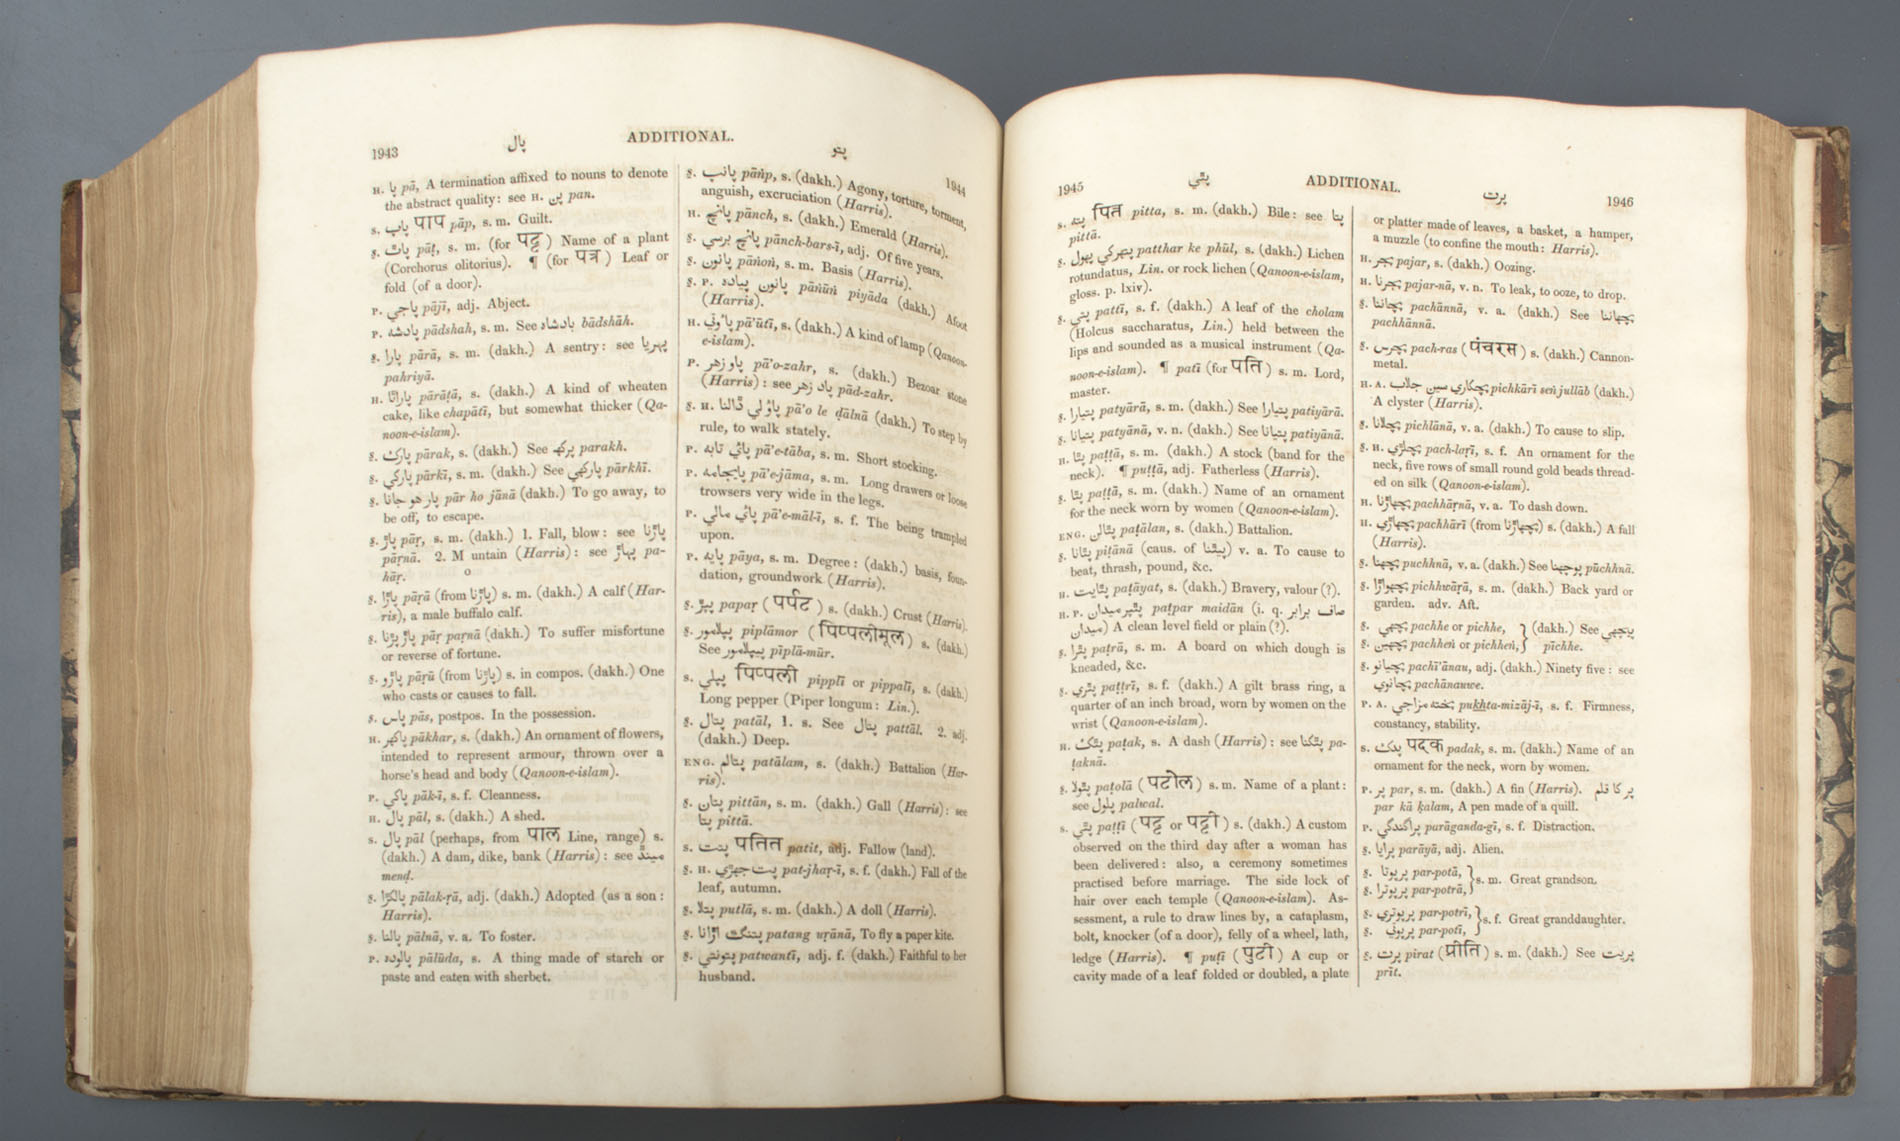 1943 پال ADDITIONAL. پتو 1944
H. پا pā, A termination affixed to nouns to denote
the abstract quality: see H. پن pan.
S. پاپ पाप pāp, s. m. Guilt.
S. پاٹ pāṭ, s. m. (for पट्ट) Name of a plant
(Corchorus olitorius). ¶ (for पत्र) Leaf or
fold (of a door).
P. پاجي pājī, adj. Abject.
P. پادشه pādshah, s. m. See بادشاه bādshāh.
S. پارا pārā, s. m. (dakh.) A sentry: see پهريا
pahriyā.
H. پاراٹا pārāṭā, s. (dakh.) A kind of wheaten
cake, like chapātī, but somewhat thicker (Qa-
noon-e-islam).
S. پارک pārak, s. (dakh.) See پرکھ parakh.
S. پارکي pārkī, s. m. (dakh.) See پارکھي pārkhī.
S. پار هو جانا pār ho jānā (dakh.) To go away, to
be off, to escape.
S. پاڑ pāṛ, s. m. (dakh.) 1. Fall, blow: see پاڑنا
pāṛnā. 2. M untain (Harris): see پہاڑ pa-
hāṛ. o
S. پاڑا pāṛā (from پاڑنا) s. m. (dakh.) A calf (Har-
ris), a male buffalo calf.
S. پاڑ پڑنا pāṛ paṛnā (dakh.) To suffer misfortune
or reverse of fortune.
S. پاڑو pāṛū (from پاڑنا) s. in compos. (dakh.) One
who casts or causes to fall.
S. پاس pās, postpos. In the possession.
H. پاکھر pākhar, s. (dakh.) An ornament of flowers,
intended to represent armour, thrown over a
horse's head and body (Qanoon-e-islam).
P. پاکي pāk-ī, s. f. Cleanness.
H. پال pāl, s. (dakh.) A shed.
S. پال pāl (perhaps, from पाल Line, range) s.
(dakh.) A dam, dike, bank (Harris): see مينڈ
menḍ.
S. پالکڑا pālak-ṛā, adj. (dakh.) Adopted (as a son:
Harris).
S. پالنا pālnā, v. a. To foster.
P. پالوده pālūda, s. A thing made of starch or
paste and eaten with sherbet.
S. پانپ pāṅp, s. (dakh.) Agony, torture, torment,
anguish, excruciation (Harris).
H. پانچ pānch, s. (dakh.) Emerald (Harris).
S. پانچ برسي pānch-bars-ī, adj. Of five years.
S. پانون pāṅoṅ, s. m. Basis (Harris).
S. P. پانون پياده pāṅūṅ piyāda (dakh.) Afoot
(Harris).
H. پاؤتي pā'ūtī, s. (dakh.) A kind of lamp (Qanoon-
e-islam).
P. پاو زهر pā'o-zahr, s. (dakh.) Bezoar stone
(Harris): see پاد زهر pād-zahr.
S. H. پاؤ لي ڈالنا pā'o le ḍālnā (dakh.) To step by
rule, to walk stately.
P. پائي تابه pā'e-tāba, s. m. Short stocking.
P. پايجامه pā'e-jāma, s. m. Long drawers or loose
trowsers very wide in the legs.
P. پائي مالي pā'e-māl-ī, s. f. The being trampled
upon.
P. پايه pāya, s. m. Degree: (dakh.) basis, foun-
dation, groundwork (Harris).
S. پپڑ papaṛ (पर्पट) s. (dakh.) Crust (Harris).
S. پيپلامور piplāmor (पिप्पलीमूल) s. (dakh.)
See پيپلامور pīplā-mūr.
S. پپلي पिप्पली pipplī or pippalī, s. (dakh.)
Long pepper (Piper longum: Lin.).
S. پتال patāl, 1. s. See پتال pattāl. 2. adj.
(dakh.) Deep.
ENG. پتالم patālam, s. (dakh.) Battalion (Har-
ris).
S. پتان pittān, s. m. (dakh.) Gall (Harris): see
پتا pittā.
S. پتت पतित patit, adj. Fallow (land).
S. H. پت جھڑي pat-jhaṛ-ī, s. f. (dakh.) Fall of the
leaf, autumn.
S. پتلا putlā, s. m. (dakh.) A doll (Harris).
S. پتنگ اڑانا patang uṛānā, To fly a paper kite.
S. پتونتي patwantī, adj. f. (dakh.) Faithful to her
husband.
1945 پٹي ADDITIONAL. پرت 1946
S. پته पित्त pitta, s. m. (dakh.) Bile: see پتا
pittā.
S. پتهر کي پهول patthar ke phūl, s. (dakh.) Lichen
rotundatus, Lin. or rock lichen (Qanoon-e-islam,
gloss. p. lxiv).
S. پتي pattī, s. f. (dakh.) A leaf of the cholam
(Holcus saccharatus, Lin.) held between the
lips and sounded as a musical instrument (Qa-
noon-e-islam). ¶ patī (for पति) s. m. Lord,
master.
S. پتيارا patyārā, s. m. (dakh.) See پتيارا patiyārā.
S. پتيانا patyānā, v. n. (dakh.) See پتيانا patiyānā.
H. پٹا paṭṭā, s. m. (dakh.) A stock (band for the
neck). ¶ puṭṭā, adj. Fatherless (Harris).
S. پٹا paṭṭā, s. m. (dakh.) Name of an ornament
for the neck worn by women (Qanoon-e-islam).
ENG. پٹالن paṭālan, s. (dakh.) Battalion.
S. پٹانا piṭānā (caus. of پيٹنا) v. a. To cause to
beat, thrash, pound, &c.
H. پٹايت paṭāyat, s. (dakh.) Bravery, valour (?).
H. P. پٹپر ميدان paṭpar maidān (i. q. صاف برابر
ميدان) A clean level field or plain (?).
S. پٹرا paṭrā, s. m. A board on which dough is
kneaded, &c.
S. پٹري paṭṭrī, s. f. (dakh.) A gilt brass ring, a
quarter of an inch broad, worn by women on the
wrist (Qanoon-e-islam).
H. پٹک paṭak, s. A dash (Harris): see پٹکنا pa-
ṭaknā.
S. پٹولا paṭolā (पटोल) s. m. Name of a plant:
see پلول palwal.
S. پٹي paṭṭī (पट्ट or पट्टी) s. (dakh.) A custom
observed on the third day after a woman has
been delivered: also, a ceremony sometimes
practised before marriage. The side lock of
hair over each temple (Qanoon-e-islam). As-
sessment, a rule to draw lines by, a cataplasm,
bolt, knocker (of a door), felly of a wheel, lath,
ledge (Harris). ¶ puṭī (पुटी) A cup or
cavity made of a leaf folded or doubled, a plate
or platter made of leaves, a basket, a hamper,
a muzzle (to confine the mouth: Harris).
H. پجر pajar, s. (dakh.) Oozing.
H. پجرنا pajar-nā, v. n. To leak, to ooze, to drop.
S. پچاننا pachānnā, v. a. (dakh.) See پچهاننا
pachhānnā.
S. پچرس pach-ras (पंचरस) s. (dakh.) Cannon-
metal.
H. A. پچکاري سين جلاب pichkārī seṅ jullāb (dakh.)
A clyster (Harris).
S. پچلانا pichlānā, v. a. (dakh.) To cause to slip.
S. H. پچلڑي pach-laṛī, s. f. An ornament for the
neck, five rows of small round gold beads thread-
ed on silk (Qanoon-e-islam).
H. پچهاڑنا pachhāṛnā, v. a. To dash down.
H. پچهاڑي pachhāṛī (from پچهاڑنا) s. (dakh.) A fall
(Harris).
S. پچهنا puchhnā, v. a. (dakh.) See پوچهنا pūchhnā.
S. پچهواڑا pichhwāṛā, s. m. (dakh.) Back yard or
garden. adv. Aft.
S. پچهي pachhe or pichhe, } (dakh.) See پيچهي
S. پچهين pachheṅ or pichheṅ, } pīchhe.
S. پچيانو pachī'ānau, adj. (dakh.) Ninety five: see
پچانوي pachānauwe.
P. A. پخته مزاجي pukhta-mizāj-ī, s. f. Firmness,
constancy, stability.
S. پدک पदक padak, s. m. (dakh.) Name of an
ornament for the neck, worn by women.
P. پر par, s. m. (dakh.) A fin (Harris). پر کا قلم
par kā ḳalam, A pen made of a quill.
P. پراگندگي parāganda-gī, s. f. Distraction.
S. پرايا parāyā, adj. Alien.
S. پرپوتا par-potā, } s. m. Great grandson.
S. پرپوترا par-potrā, }
S. پرپوتري par-potrī, } s. f. Great granddaughter.
S. پرپوتي par-potī, }
S. پرت pirat (प्रीति) s. m. (dakh.) See پريت
prīt.